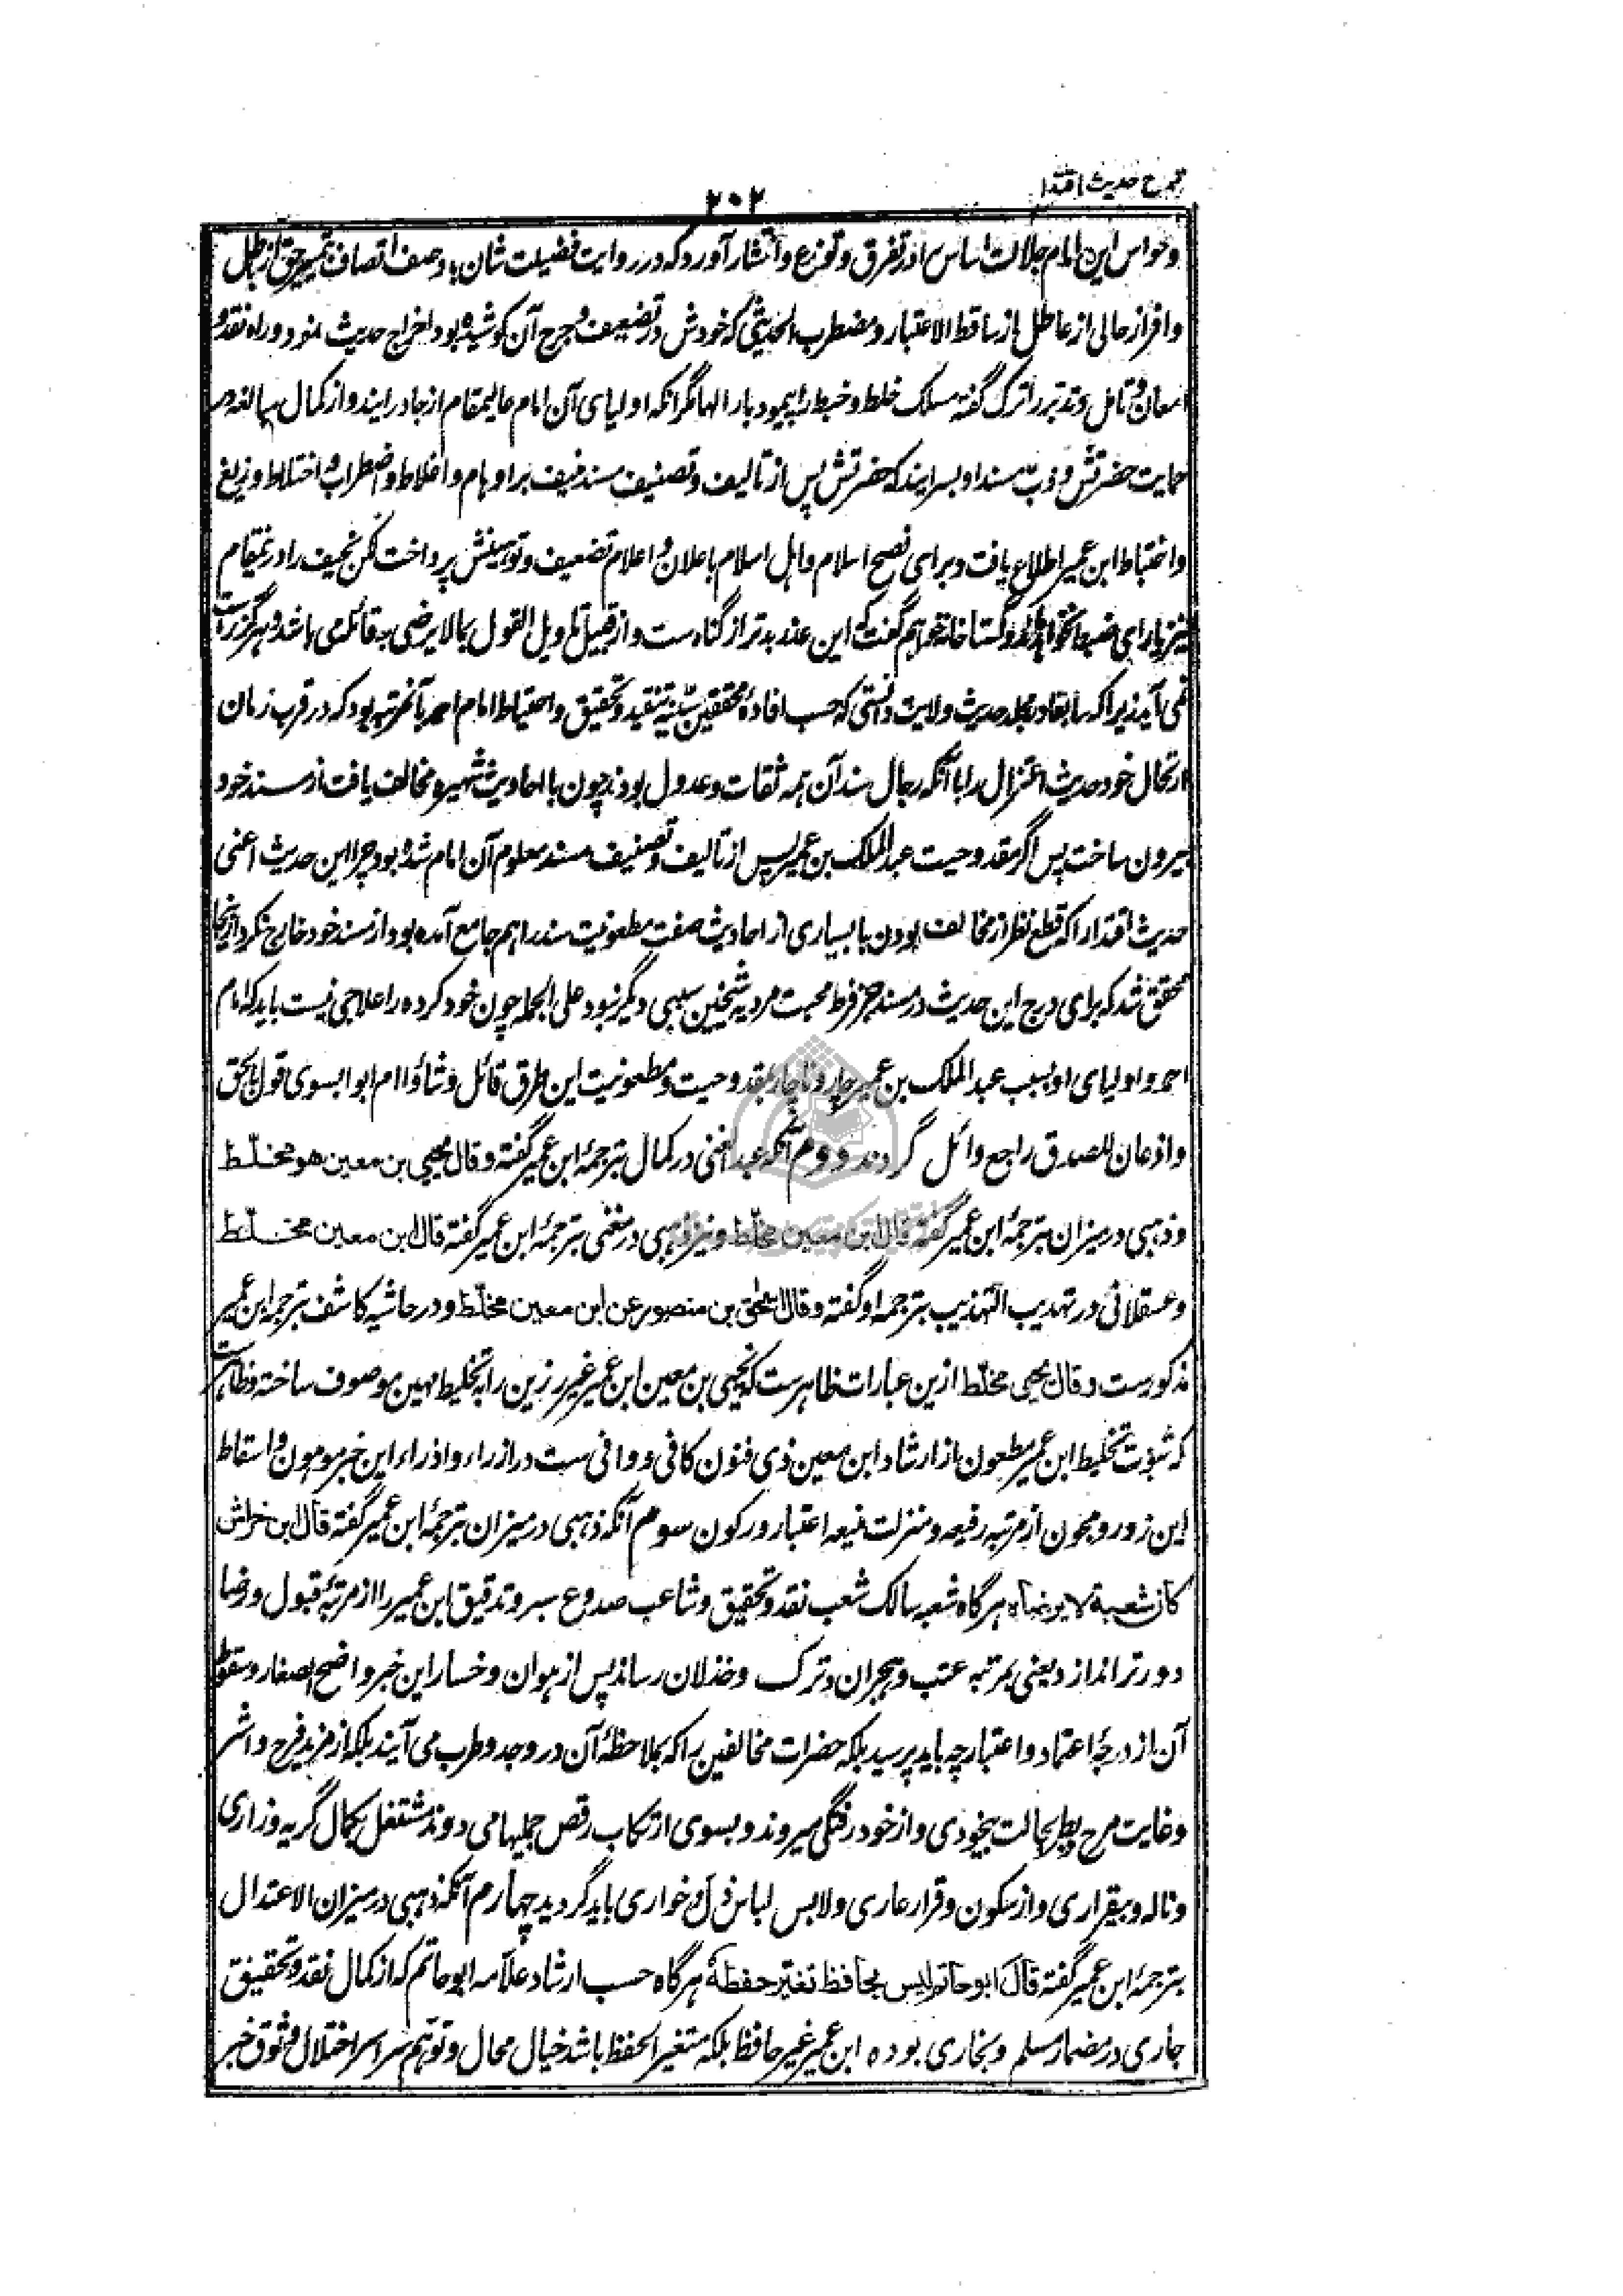 قدوح حدیث اقتدا
۲۰۲
وحواس این امام جلالت اساس او تفرق وتوزع وانتشار آورد که در روایت فضیلت شان با وصف اتصاف تمییز حق از باطل
وافراز حالی از عاطل از ساقط الاعتبار ومضطرب الحدیثی که خودش در تضعیف وجرح آن کوشیده بود اخراج حدیث نمود وراه نقد و
امعان وتامل وتدبر را ترک گفته مسلک خلط وخبط را پیمود بار الها مگر آنکه اولیای آن امام عالیمقام از جا درایند واز کمال مبالغه در
حمایت حضرتش وذب مسند او بسرایند که حضرتش پس از تالیف وتصنیف مسند منیف بر اوهام واغلاط واضطراب واختلاط وزیغ
واختباط ابن عمیر اطلاع یافت وبرای نصح اسلام واهل اسلام باعلان واعلام تضعیف وتوهینش پرداخت لکن نحیف را درینمقام
نیز یارای ضبط نخواهد ماند وگستاخانه خواهم گفت که این عذر بدتر از گناه ست واز قبیل تاویل القول بما لا یرضی به قائله می باشد وهرگز راست
نمی آید زیرا که سابقا در مجلد حدیث ولایت دانستی که حسب افادهٔ محققین سنیه تنقید وتحقیق واحتیاط امام احمد بآنمرتبه بود که در قرب زمان
ارتحال خود حدیث اعتزال را با آنکه رجال سند آن همه ثقات وعدول بودند چون با احادیث شهیره مخالف یافت از مسند خود
بیرون ساخت پس اگر مقدوحیت عبد الملک بن عمیر پس از تالیف وتصنیف مسند معلوم آن امام شده بود چرا این حدیث اعنی
حدیث اقتدا را که قطع نظر از مخالف بودن با بسیاری از احادیث صفت مطعونیت سند را هم جامع آمده بود از مسند خود خارج نکرد ازینجا
محقق شد که برای درج این حدیث در مسند جز فرط محبت مرویه شیخین سببی دیگر نبود علی الجمله چون خود کرده را علاجی نیست باید که امام
احمد واولیای او بسبب عبد الملک بن عمیر چار وناچار بمقدوحیت ومطعونیت این طرق قائل وشاؤا ام ابوا بسوی قول بالحق
واذعان للصدق راجع وائل گردند دوم آنکه عبد الغنی در کمال بترجمهٔ ابن عمیر گفته وقال یحیی بن معین هو مخلّط
وذهبی در میزان بترجمهٔ ابن عمیر گفته قال ابن معین مخلّط ونیز ذهبی در مغنی بترجمهٔ ابن عمیر گفته قال ابن معین مخلّط
وعسقلانی در تهذیب التهذیب بترجمه او گفته وقال اسحٰق بن منصور عن ابن معین مخلّط ودر حاشیه کاشف بترجمه ابن عمیر
مذکورست وقال یحیی مخلّط ازین عبارات ظاهرست که یحیی بن معین ابن عمیر غیر رزین را به تخلیط مهین موصوف ساخته وظاهرست
که ثبوت تخلیط ابن عمیر مطعون از ارشاد ابن معین ذی فنون کافی ووافی ست در ازراء واذراء این خبر موهون واسقاط
این زور ومجون از مرتبه رفیعه ومنزلت منیعه اعتبار ورکون سوم آنکه ذهبی در میزان بترجمهٔ ابن عمیر گفته قال ابن خراش
کان شعبة لا یرضاه هرگاه شعبه سالک شعب نقد وتحقیق وشاعب صدوع سبر وتدقیق ابن عمیر را از مرتبهٔ قبول ورضا
دورتر اندازد یعنی بمرتبه عتب وهجران وترک وخذلان رساند پس از هوان وخسار این خبر واضح الصغار وسقوط
آن از درجهٔ اعتماد واعتبار چه باید پرسید بلکه حضرات مخالفین را که بملاحظهٔ آن در وجد وطرب می آیند بلکه از مزید فرح واشر
وغایت مرح وبطر بحالت بیخودی واز خود رفتگی میروند وبسوی ارتکاب رقص جمیلها می دوند مشتغل بکمال گریه وزاری
وناله وبیقراری واز سکون وقرار عاری ولابس لباس ذل وخواری باید گردید چهارم آنکه ذهبی در میزان الاعتدال
بترجمهٔ ابن عمیر گفته قال ابو حاتم لیس بحافظ تغیر حفظهٔ هرگاه حسب ارشاد علّامه ابو حاتم که از کمال نقد وتحقیق
جاری در مضمار مسلم وبخاری بوده ابن عمیر غیر حافظ بلکه متغیر الحفظ باشد خیال محال وتوهّم سراسر اختلال وثوق خبر